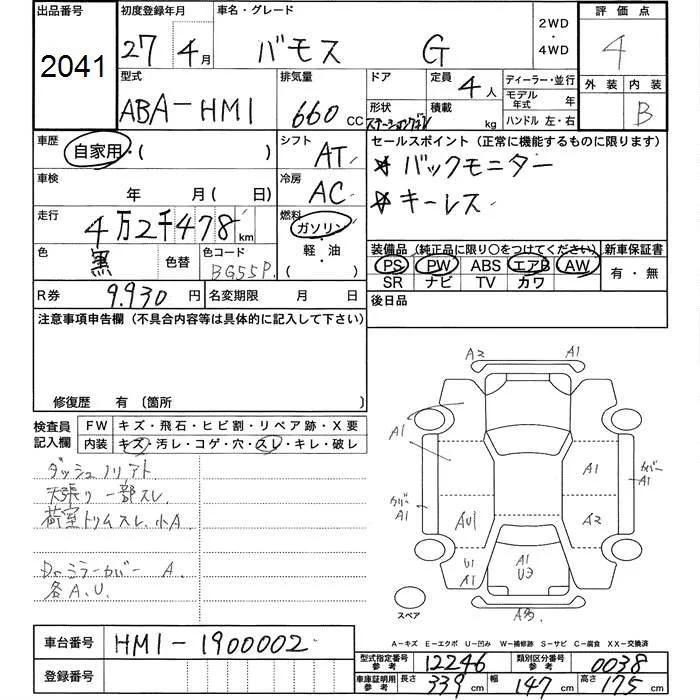 出品番号 初度登録年月 車名・グレード 2WD・4WD 評価点
2041 27 4月 バモス G 4
型式 排気量 ドア 定員 4人 ディーラー・並行 外装 内装
ABA-HM1 660cc 形状 ステーションワゴン 積載 kg モデル年式 年 ハンドル 左・右 B
車歴 自家用・( ) シフト AT セールスポイント (正常に機能するものに限ります)
車検 年 月(日) 冷房 AC ☆ バックモニター
☆ キーレス
走行 4万2千478km 燃料 ガソリン・軽・油( )
色 黒 色替 色コード BG55P 装備品 (純正品に限り〇をつけてください) 新車保証書
PS PW ABS エアB AW 有・無
SR ナビ TV カワ
R券 9,930円 名変期限 月 日 後日品
注意事項申告欄 (不具合内容等は具体的に記入して下さい)
修復歴 有 (箇所 )
検査員記入欄 FW キズ・飛石・ヒビ割・リペア跡・X要
内装 キズ・汚レ・コゲ・穴・スレ・キレ・破レ
ダッシュノリアト
天張り一部スレ
荷室トリムスレ、小A
Drミラーカバー A
各A.U.
A2 A1
A1 A1 カバーA1
カバーA1 AU1 A2
U1 A1 A1 U3
スペア A3
A-キズ E-エクボ U-凹み W-補修跡 S-サビ C-腐食 XX-交換済
車台番号 HM1-1900002
型式指定番号 参考 12246 類別区分番号 参考 0038
登録番号 車庫証明用 参考 長さ 339cm 幅 147cm 高さ 175cm